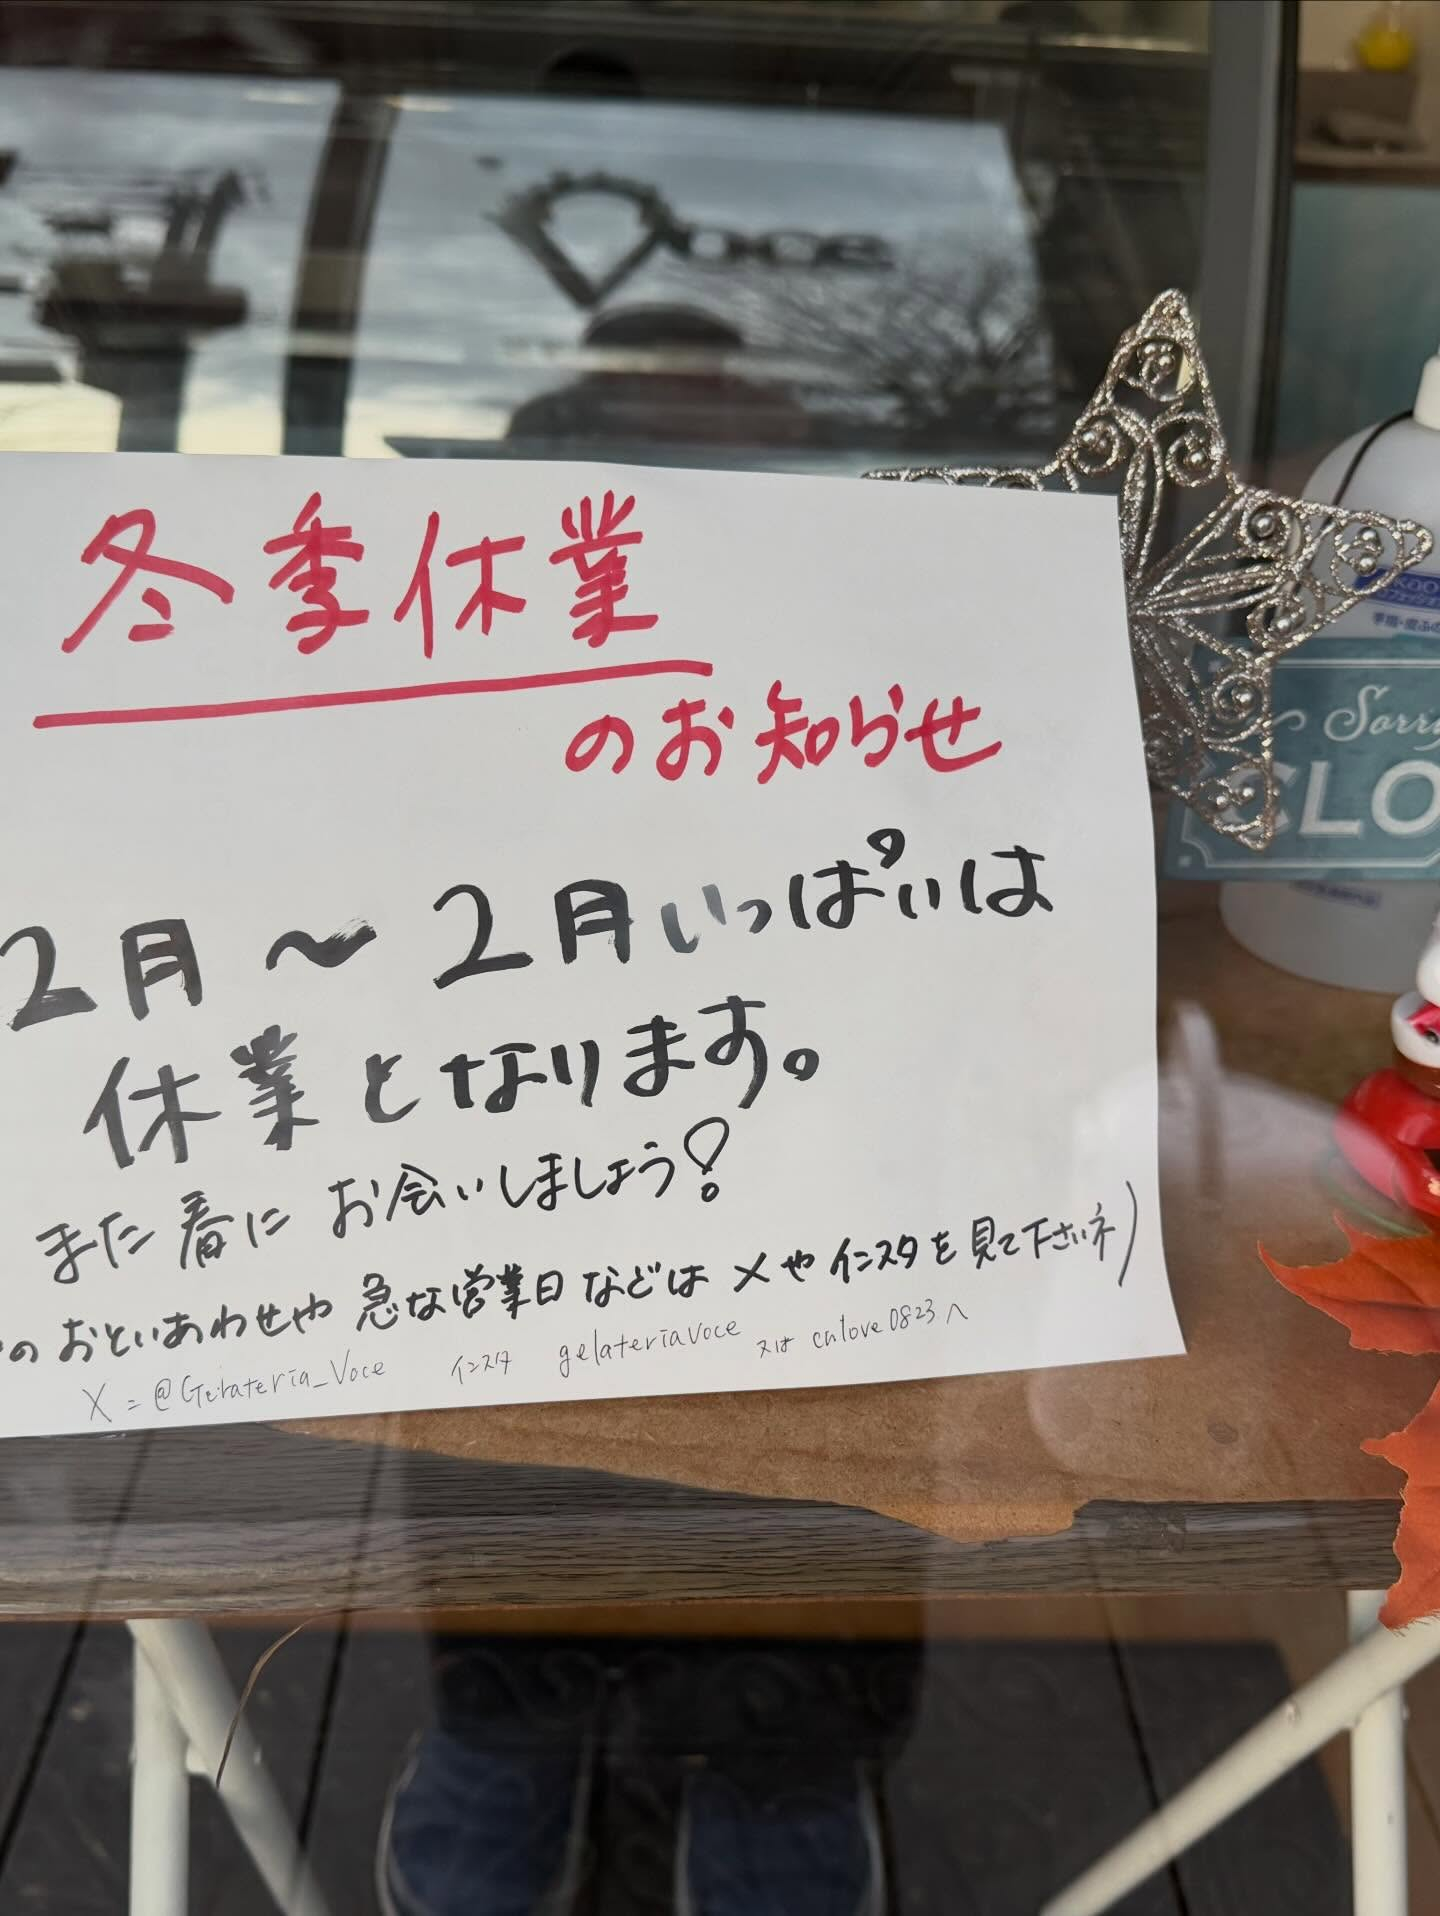 Voce
冬季休業
のお知らせ
2月～2月いっぱいは
休業となります。
また春にお会いしましょう!
のおといあわせや急な営業日などはXやインスタを見て下さいネ)
X=@Gelateria_Voce インスタ gelateriavoce 又は cnlove0823へ
Kao
手指・皮ふの
Sorry
CLO